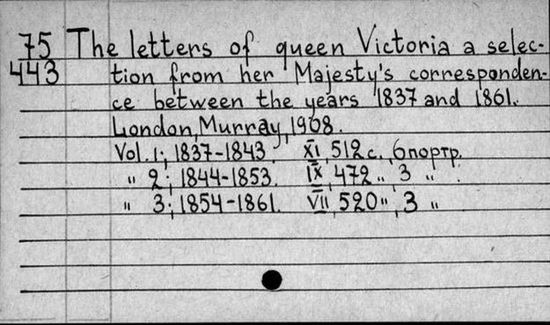 75 The letters of queen Victoria a selec-
443 tion from her Majesty's corresponden-
ce between the years 1837 and 1861.
London, Murray, 1908.
Vol. 1; 1837-1843 XI, 512 с., 6 портр.
" 2; 1844-1853. IX, 472 " , 3 " .
" 3; 1854-1861. VII, 520 " , 3 "